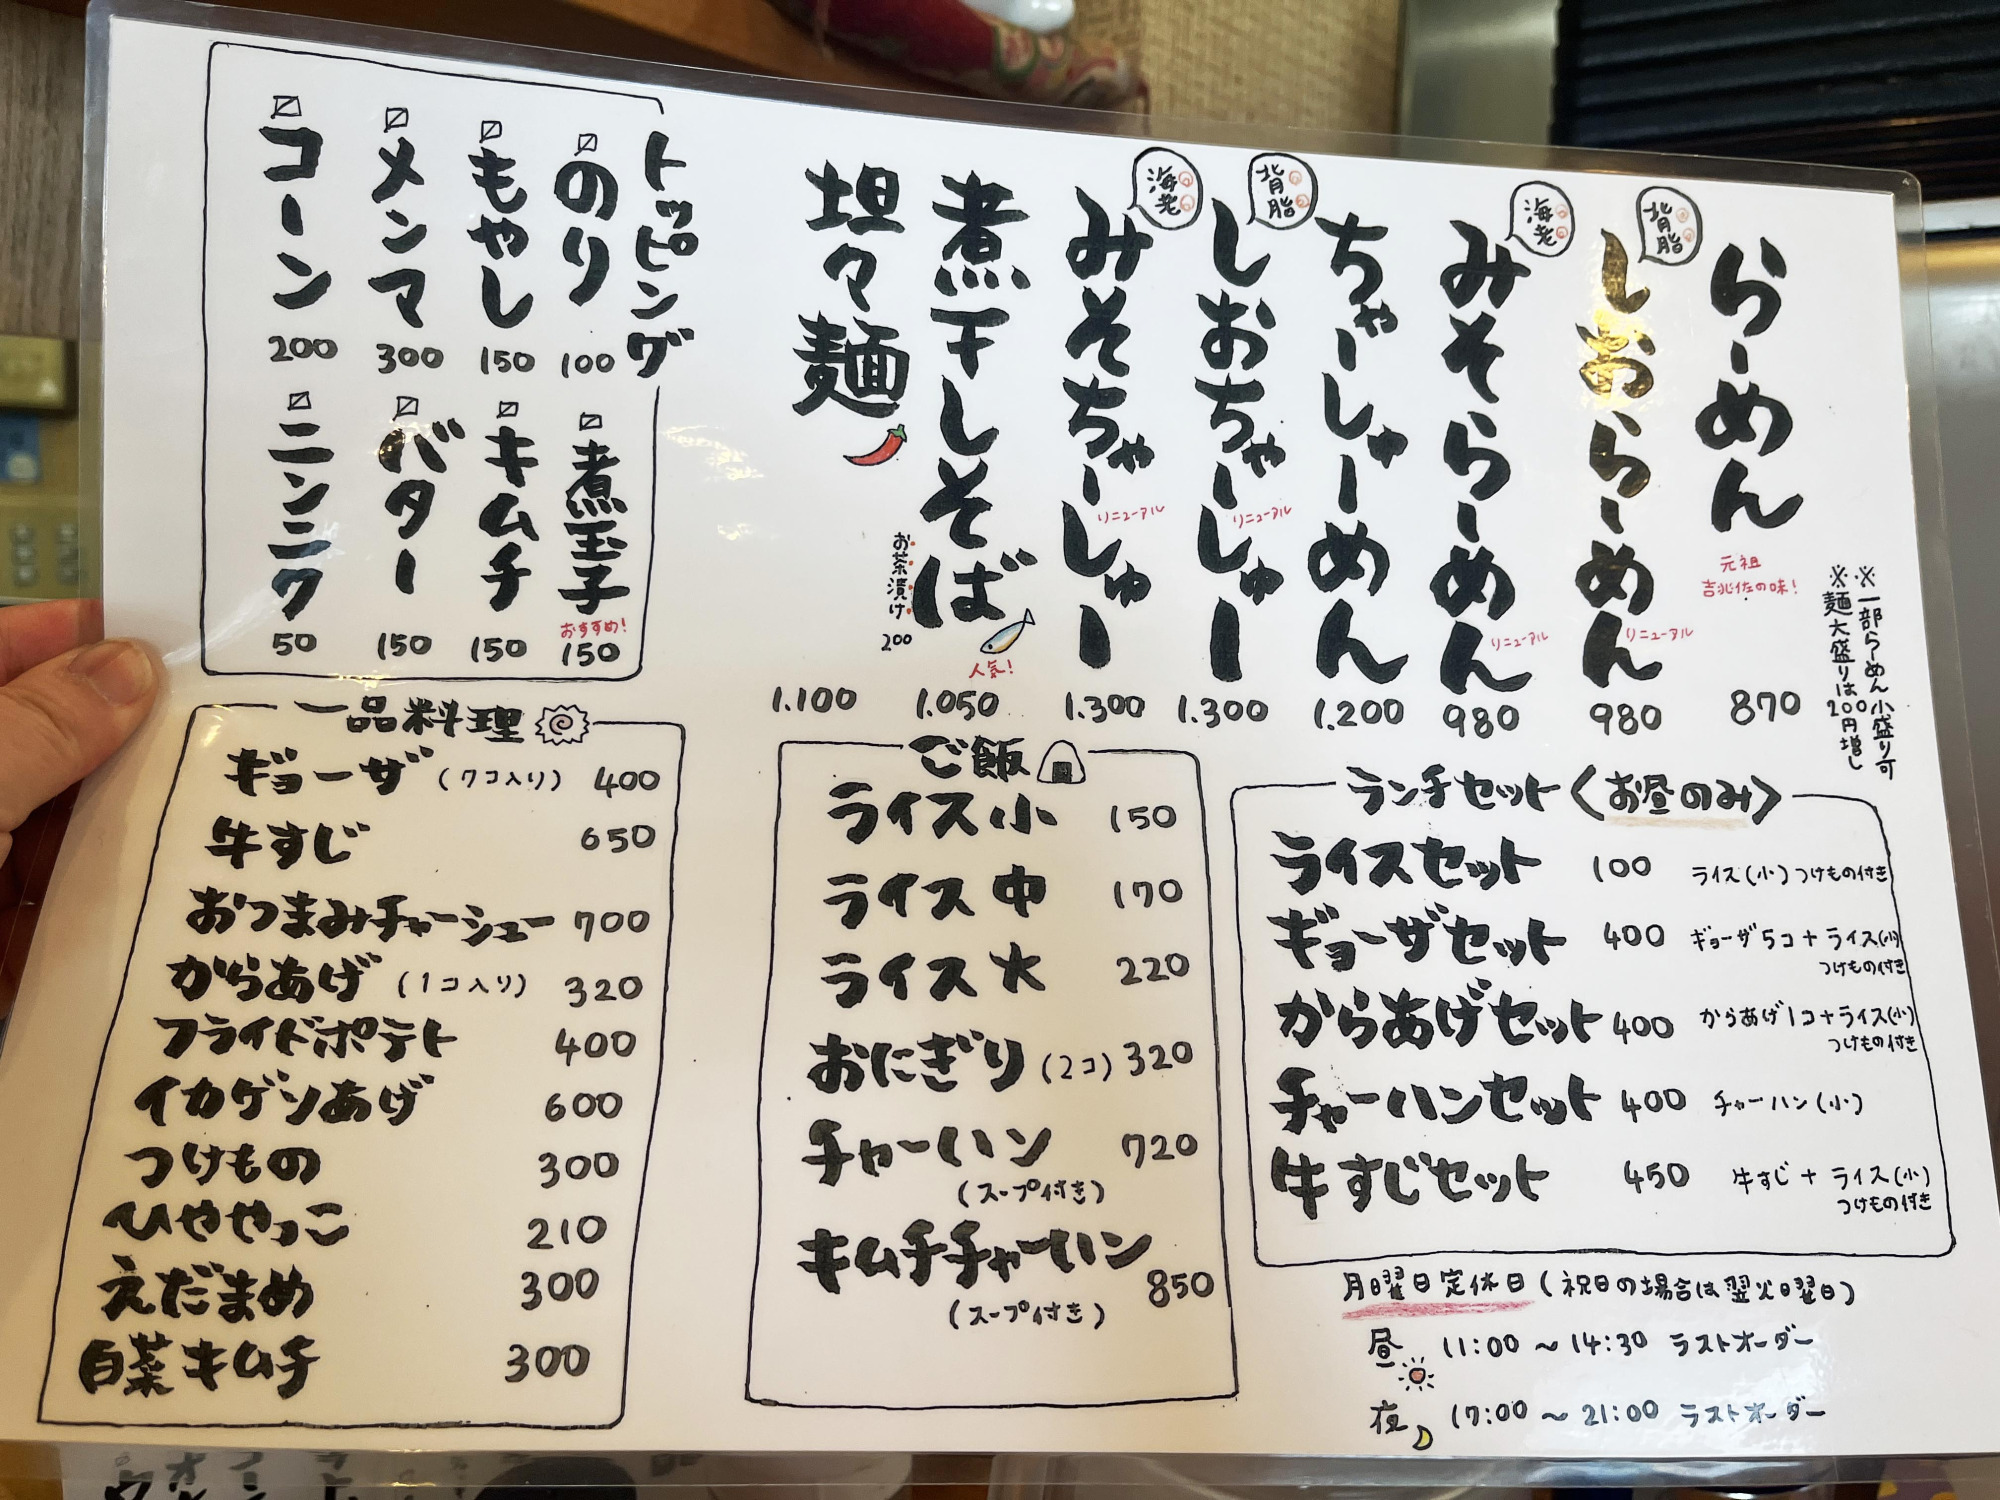 らーめん 870
元祖
吉兆佐の味!
背脂
しおらーめん 980
リニューアル
海老
みそらーめん 980
リニューアル
ちゃーしゅーめん 1.200
背脂
しおちゃーしゅー 1.300
リニューアル
海老
みそちゃーしゅー 1.300
リニューアル
煮干しそば 1.050
人気!
お茶漬け 200
坦々麺 1.100
※一部らーめん小盛り可
※麺大盛りは200円増し
トッピング
のり 100
もやし 150
メンマ 300
コーン 200
煮玉子 150
おすすめ!
キムチ 150
バター 150
ニンニク 50
一品料理
ギョーザ(7コ入り) 400
牛すじ 650
おつまみチャーシュー 700
からあげ(1コ入り) 320
フライドポテト 400
イカゲソあげ 600
つけもの 300
ひややっこ 210
えだまめ 300
白菜キムチ 300
ご飯
ライス小 150
ライス中 170
ライス大 220
おにぎり(2コ) 320
チャーハン 720
(スープ付き)
キムチチャーハン 850
(スープ付き)
ランチセット〈お昼のみ〉
ライスセット 100 ライス(小)つけもの付き
ギョーザセット 400 ギョーザ5コ+ライス(小)
つけもの付き
からあげセット 400 からあげ1コ+ライス(小)
つけもの付き
チャーハンセット 400 チャーハン(小)
牛すじセット 450 牛すじ+ライス(小)
つけもの付き
月曜日定休日(祝日の場合は翌火曜日)
昼 11:00~14:30 ラストオーダー
夜 17:00~21:00 ラストオーダー